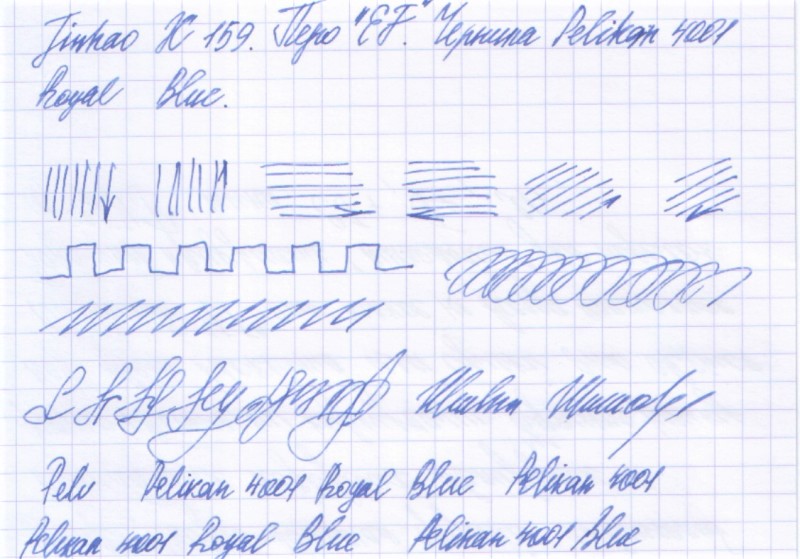 Jinhao X 159. Перо "EF." Чернила Pelikan 4001
Royal Blue.
Pelikan 4001 Royal Blue Pelikan 4001
Pelikan 4001 Royal Blue Pelikan 4001 Blue